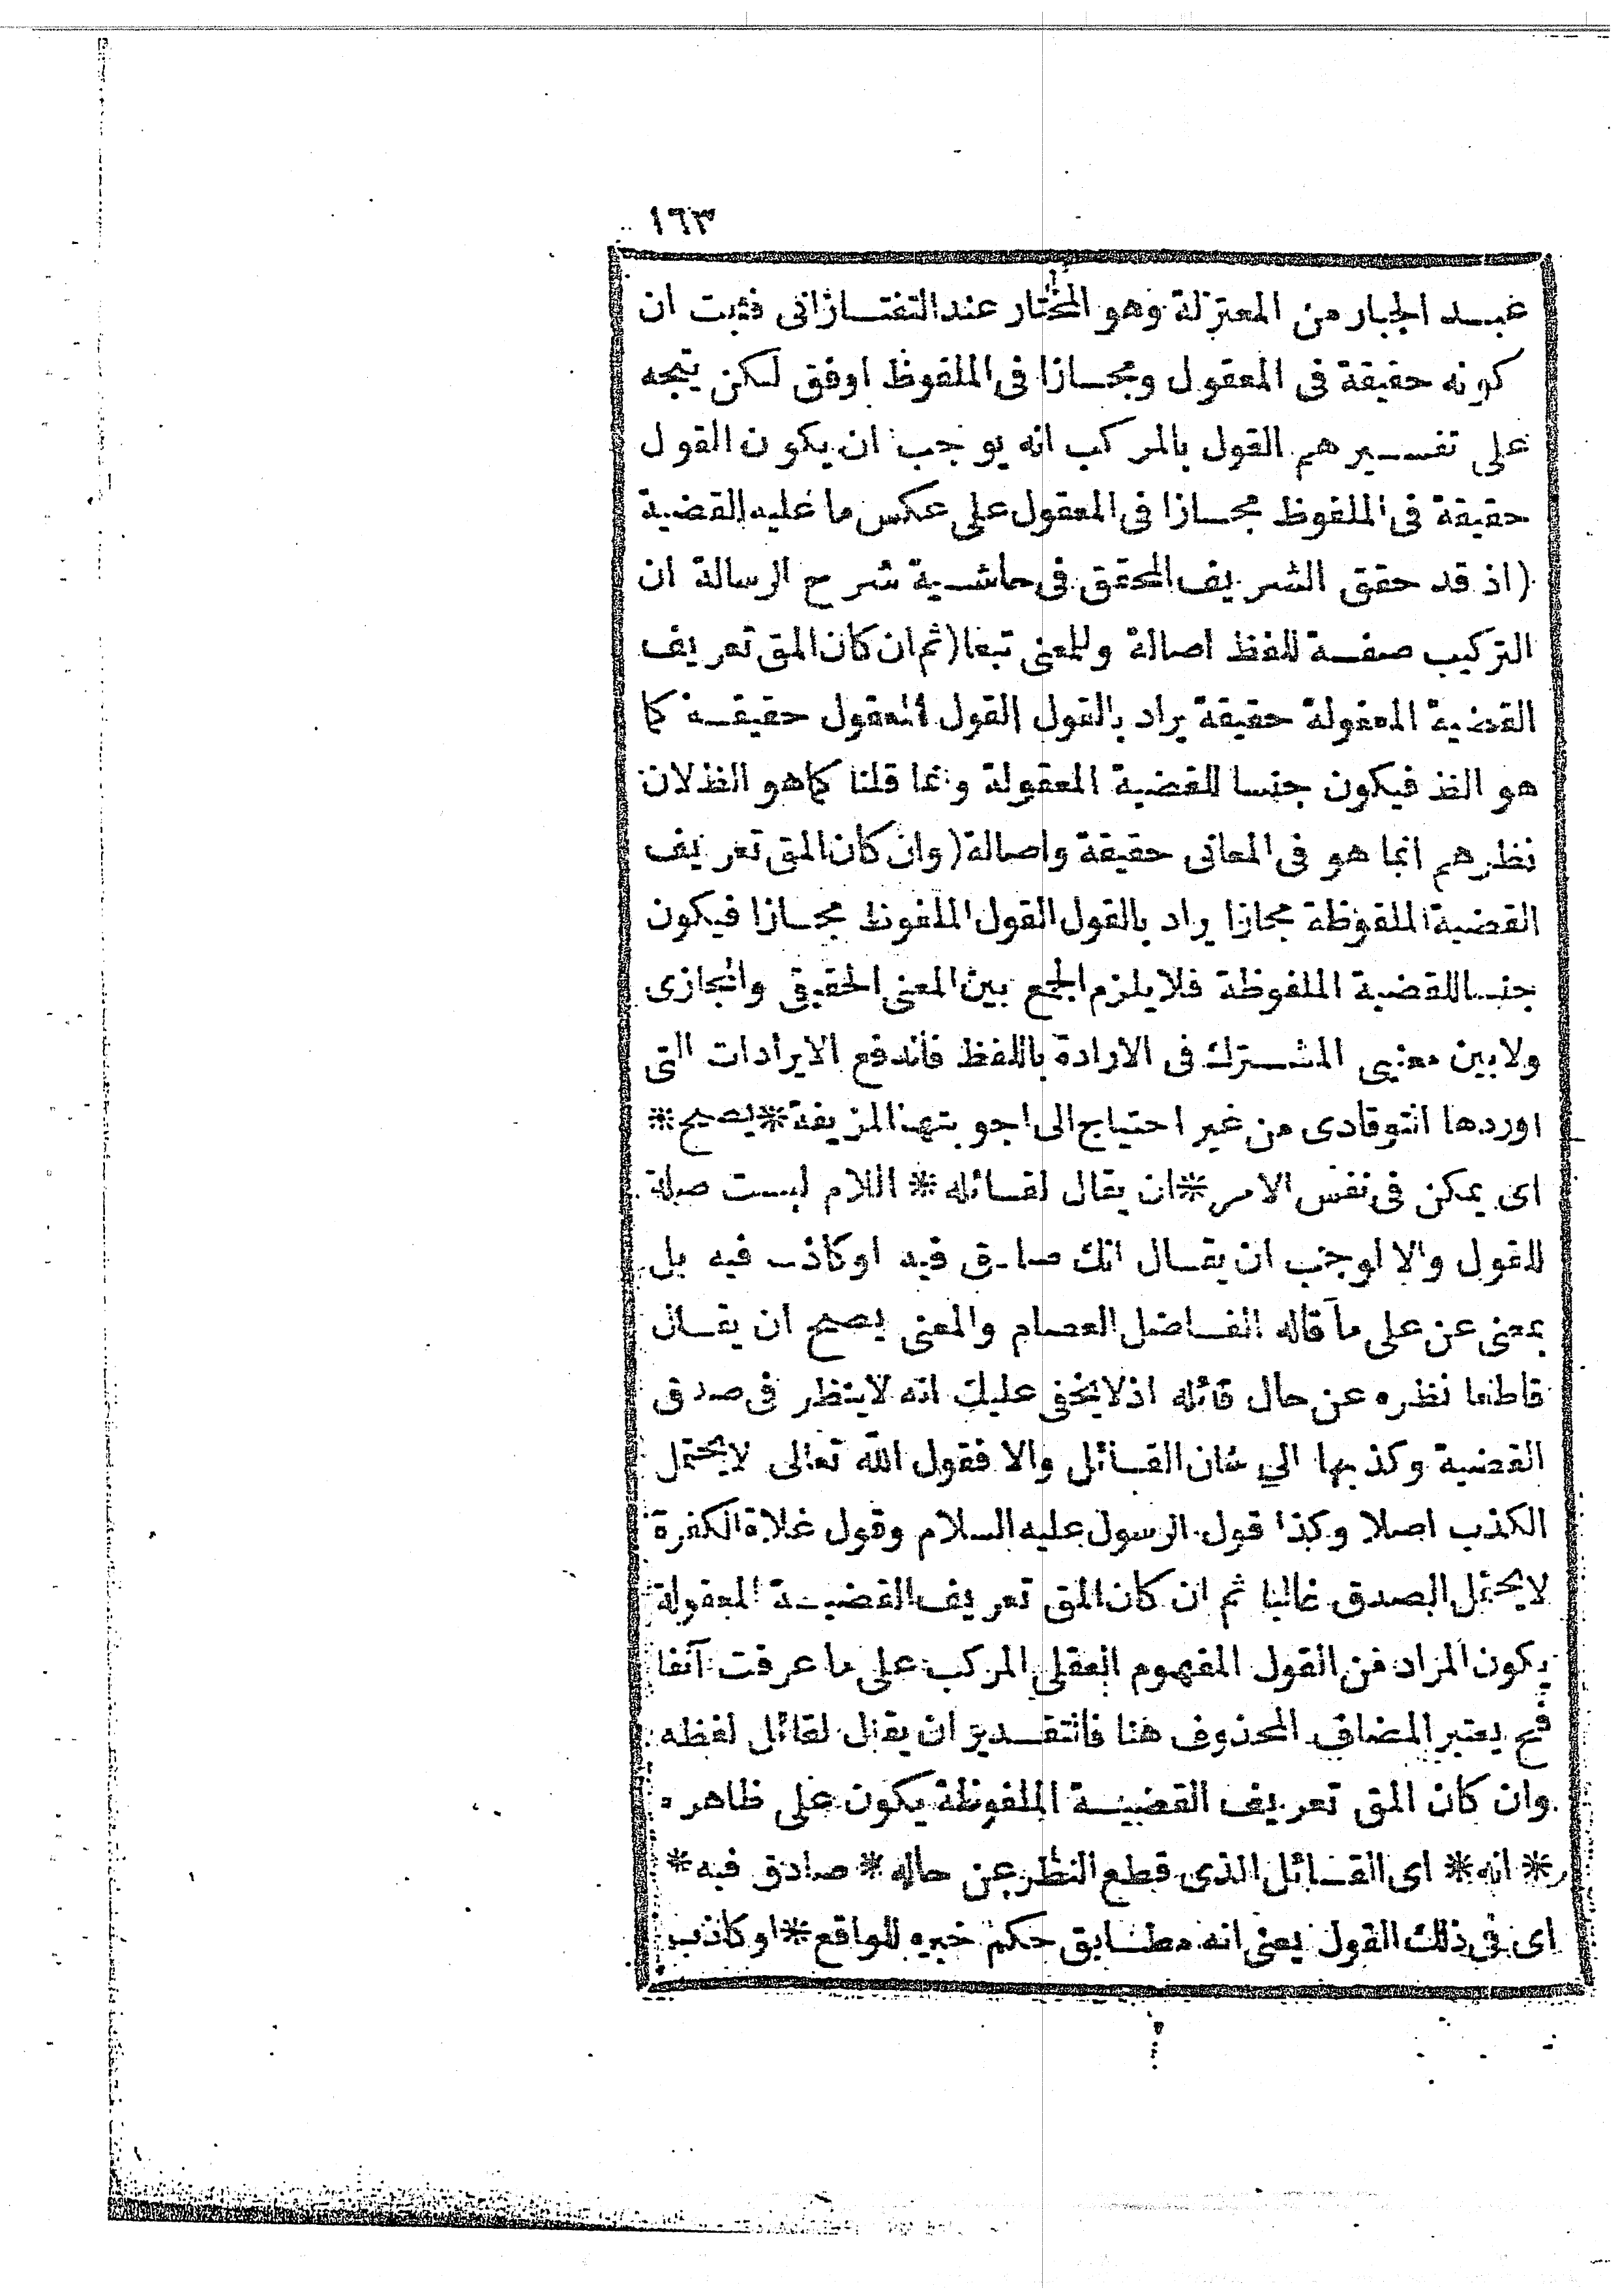 ١٦٣
عبد الجبار من المعتزلة وهو المختار عند التفتازانى فثبت ان
كونه حقيقة فى المعقول ومجازا فى الملفوظ اوفق لكن يتجه
على تفسيرهم القول بالمركب انه يوجب ان يكون القول
حقيقة فى الملفوظ مجازا فى المعقول على عكس ما عليه القضية
(اذ قد حقق الشريف المحقق فى حاشية شرح الرسالة ان
التركيب صفة للفظ اصالة وللمعنى تبعا (ثم ان كان المق تعريف
القضية المعقولة حقيقة يراد بالقول القول المعقول حقيقة كما
هو الظ فيكون جنسا للقضية المعقولة وانما قلنا كما هو الظ لان
نظرهم انما هو فى المعانى حقيقة واصالة (وان كان المق تعريف
القضية الملفوظة مجازا يراد بالقول القول الملفوظ مجازا فيكون
جنسا للقضية الملفوظة فلا يلزم الجمع بين المعنى الحقيقى والمجازى
ولا بين معنيى المشترك فى الارادة باللفظ فاندفع الايرادات التى
اوردها التوقادى من غير احتياج الى اجوبتها المزيفة * يصح *
اى يمكن فى نفس الامر * ان يقال لقائله * اللام ليست صلة
للقول والا لوجب ان يقال انك صادق فيه او كاذب فيه بل
بمعنى عن على ما قاله الفاضل العصام والمعنى يصح ان يقال
قاطعا نظره عن حال قائله اذ لا يخفى عليك انه لا ينظر فى صدق
القضية وكذبها الى شان القائل والا فقول الله تعالى لا يحتمل
الكذب اصلا وكذا قول الرسول عليه السلام وقول غلاة الكفرة
لا يحتمل الصدق غالبا ثم ان كان المق تعريف القضية المعقولة
يكون المراد من القول المفهوم العقلى المركب على ما عرفت آنفا
فح يعتبر المضاف المحذوف هنا فالتقدير ان يقال لقائل لفظه
وان كان المق تعريف القضية الملفوظة يكون على ظاهره
* انه * اى القائل الذى قطع النظر عن حاله * صادق فيه *
اى فى ذلك القول يعنى انه مطابق حكم خبره للواقع * او كاذب